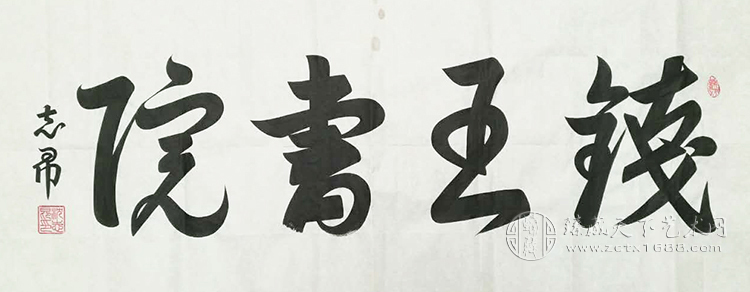 錢王書院
志
臻藏天下艺术网
www.zctx1688.com